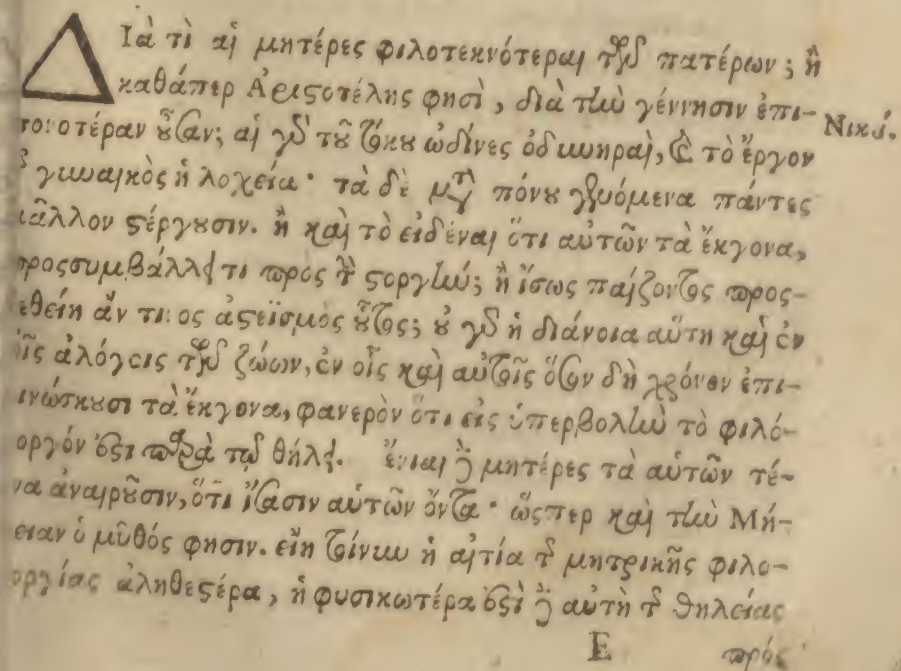 Διὰ τὶ αἱ μητέρες φιλοτεκνότεραι τῶν πατέρων; ἢ
καθάπερ Ἀριστοτέλης φησὶ, διὰ τὴν γέννησιν ἐπι-
Νικό.
τονοτέραν οὖσαν; αἱ γδ τοῦ τόκου ὠδίνες ὀδυνηραὶ, καὶ τὸ ἔργον
γυναικὸς ἡ λοχεία· τὰ δὲ μετὰ πόνου γενόμενα πάντες
μᾶλλον στέργουσιν. ἢ καὶ τὸ εἰδέναι ὅτι αὐτῶν τὰ ἔκγονα,
προσσυμβάλλει τι πρὸς τὴν στοργὴν; ἢ ἴσως παίζοντος προς-
εθείη ἄν τινος ἀστεϊσμὸς οὗτος; οὐ γδ ἡ διάνοια αὕτη καὶ ἐν
οῖς ἀλόγοις τῶν ζώων, ἐν οἷς καὶ αὐτοῖς ὅσον δὴ χρόνον ἐπι-
ινώσκουσι τὰ ἔκγονα, φανερὸν ὅτι εἰς ὑπερβολὴν τὸ φιλό-
οργόν ἐστι παρὰ τῷ θήλει. ἔνιαι δὲ μητέρες τὰ αὑτῶν τέ-
να ἀναιροῦσιν, ὅτι ἴσασιν αὑτῶν ὄντα· ὥσπερ καὶ τὴν Μή-
ειαν ὁ μῦθός φησιν. εἴη τοίνυν ἡ αἰτία τῆς μητρικῆς φιλο-
οργίας ἀληθεστέρα, ἡ φυσικωτέρα ἐστὶ δὲ αὐτὴ τῆς θηλείας
E πρός